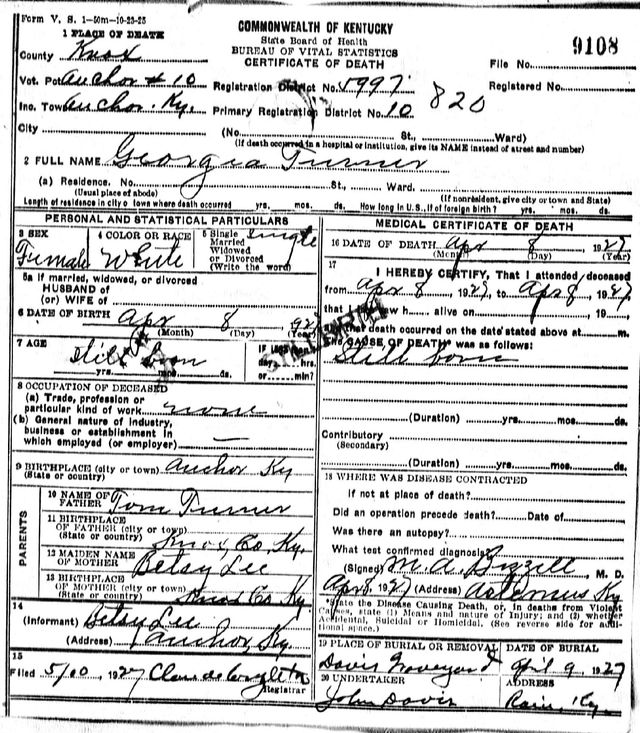 Form V. S. 1-50m-10-23-25
COMMONWEALTH OF KENTUCKY
State Board of Health
BUREAU OF VITAL STATISTICS
CERTIFICATE OF DEATH
1 PLACE OF DEATH
County Knox
File No. 9108
Vot. Pct Anchor # 10 Registration District No. 5997 Registered No.
Inc. Town Anchor, Ky. Primary Registration District No. 10 820
City (No. St., Ward)
(If death occurred in a hospital or institution, give its NAME instead of street and number)
2 FULL NAME Georgia Turner
(a) Residence. No. St., Ward.
(Usual place of abode) (If nonresident, give city or town and State)
Length of residence in city or town where death occurred yrs. mos. ds. How long in U.S., if of foreign birth? yrs. mos. ds.
PERSONAL AND STATISTICAL PARTICULARS
3 SEX Female
4 COLOR OR RACE White
5 Single Married Widowed or Divorced (Write the word) Single
5a If married, widowed, or divorced
HUSBAND of
(or) WIFE of
6 DATE OF BIRTH Apr 8 1927
(Month) (Day) (Year)
7 AGE Still born
yrs. mos. ds. or min?
STILLBIRTH
8 OCCUPATION OF DECEASED
(a) Trade, profession or
particular kind of work none
(b) General nature of industry,
business or establishment in
which employed (or employer) —
9 BIRTHPLACE (city or town) Anchor Ky
(State or country)
PARENTS
10 NAME OF
FATHER Tom Turner
11 BIRTHPLACE
OF FATHER (city or town)
(State or country) Knox Co, Ky.
12 MAIDEN NAME
OF MOTHER Betsy Lee
13 BIRTHPLACE
OF MOTHER (city or town)
(State or country) Knox Co, Ky
14
(Informant) Betsy Lee
(Address) Anchor, Ky.
15
Filed 5/10 1927
Registrar
MEDICAL CERTIFICATE OF DEATH
16 DATE OF DEATH Apr 8 1927
(Month) (Day) (Year)
17
I HEREBY CERTIFY, That I attended deceased
from Apr 8, 1927, to Apr 8, 1927,
that I saw h alive on 19
and that death occurred on the date stated above at m.
The CAUSE OF DEATH was as follows:
Still born
(Duration) yrs. mos. ds.
Contributory
(Secondary)
(Duration) yrs. mos. ds.
18 WHERE WAS DISEASE CONTRACTED
If not at place of death?
Did an operation precede death? Date of
Was there an autopsy?
What test confirmed diagnosis?
(Signed) M. A. , M. D.
Apr 8, 1927 (Address) Artemus Ky
State the Disease Causing Death, or, in deaths from Violent
Causes, state (1) Means and nature of Injury; and (2) whether
Accidental, Suicidal or Homicidal. (See reverse side for addi-
tional space.)
19 PLACE OF BURIAL OR REMOVAL DATE OF BURIAL
Davis Graveyard April 9 1927
20 UNDERTAKER ADDRESS
John Davis , Ky.